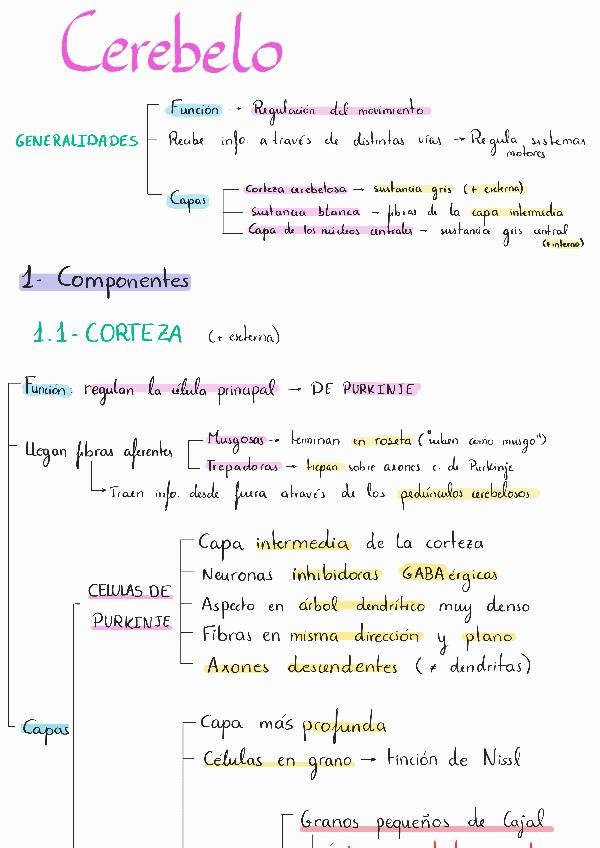 Cerebelo
GENERALIDADES
Función → Regulación del movimiento
Recibe info. a través de distintas vías → Regula sistemas
motores
Capas
Corteza cerebelosa → sustancia gris (+ externa)
Sustancia blanca → fibras de la capa intermedia
Capa de los núcleos centrales → sustancia gris central
(+ interna)
1- Componentes
1.1- CORTEZA (+ externa)
Función: regulan la célula principal → DE PURKINJE
Llegan fibras aferentes
Musgosas → terminan en roseta ("suben como musgo")
Trepadoras → trepan sobre axones c. de Purkinje
Traen info. desde fuera através de los pedúnculos cerebelosos
Capas
CELULAS DE
PURKINJE
Capa intermedia de la corteza
Neuronas inhibidoras GABAérgicas
Aspecto en árbol dendrítico muy denso
Fibras en misma dirección y plano
Axones descendentes (≠ dendritas)
Capa más profunda
Células en grano → tinción de Nissl
Granos pequeños de Cajal